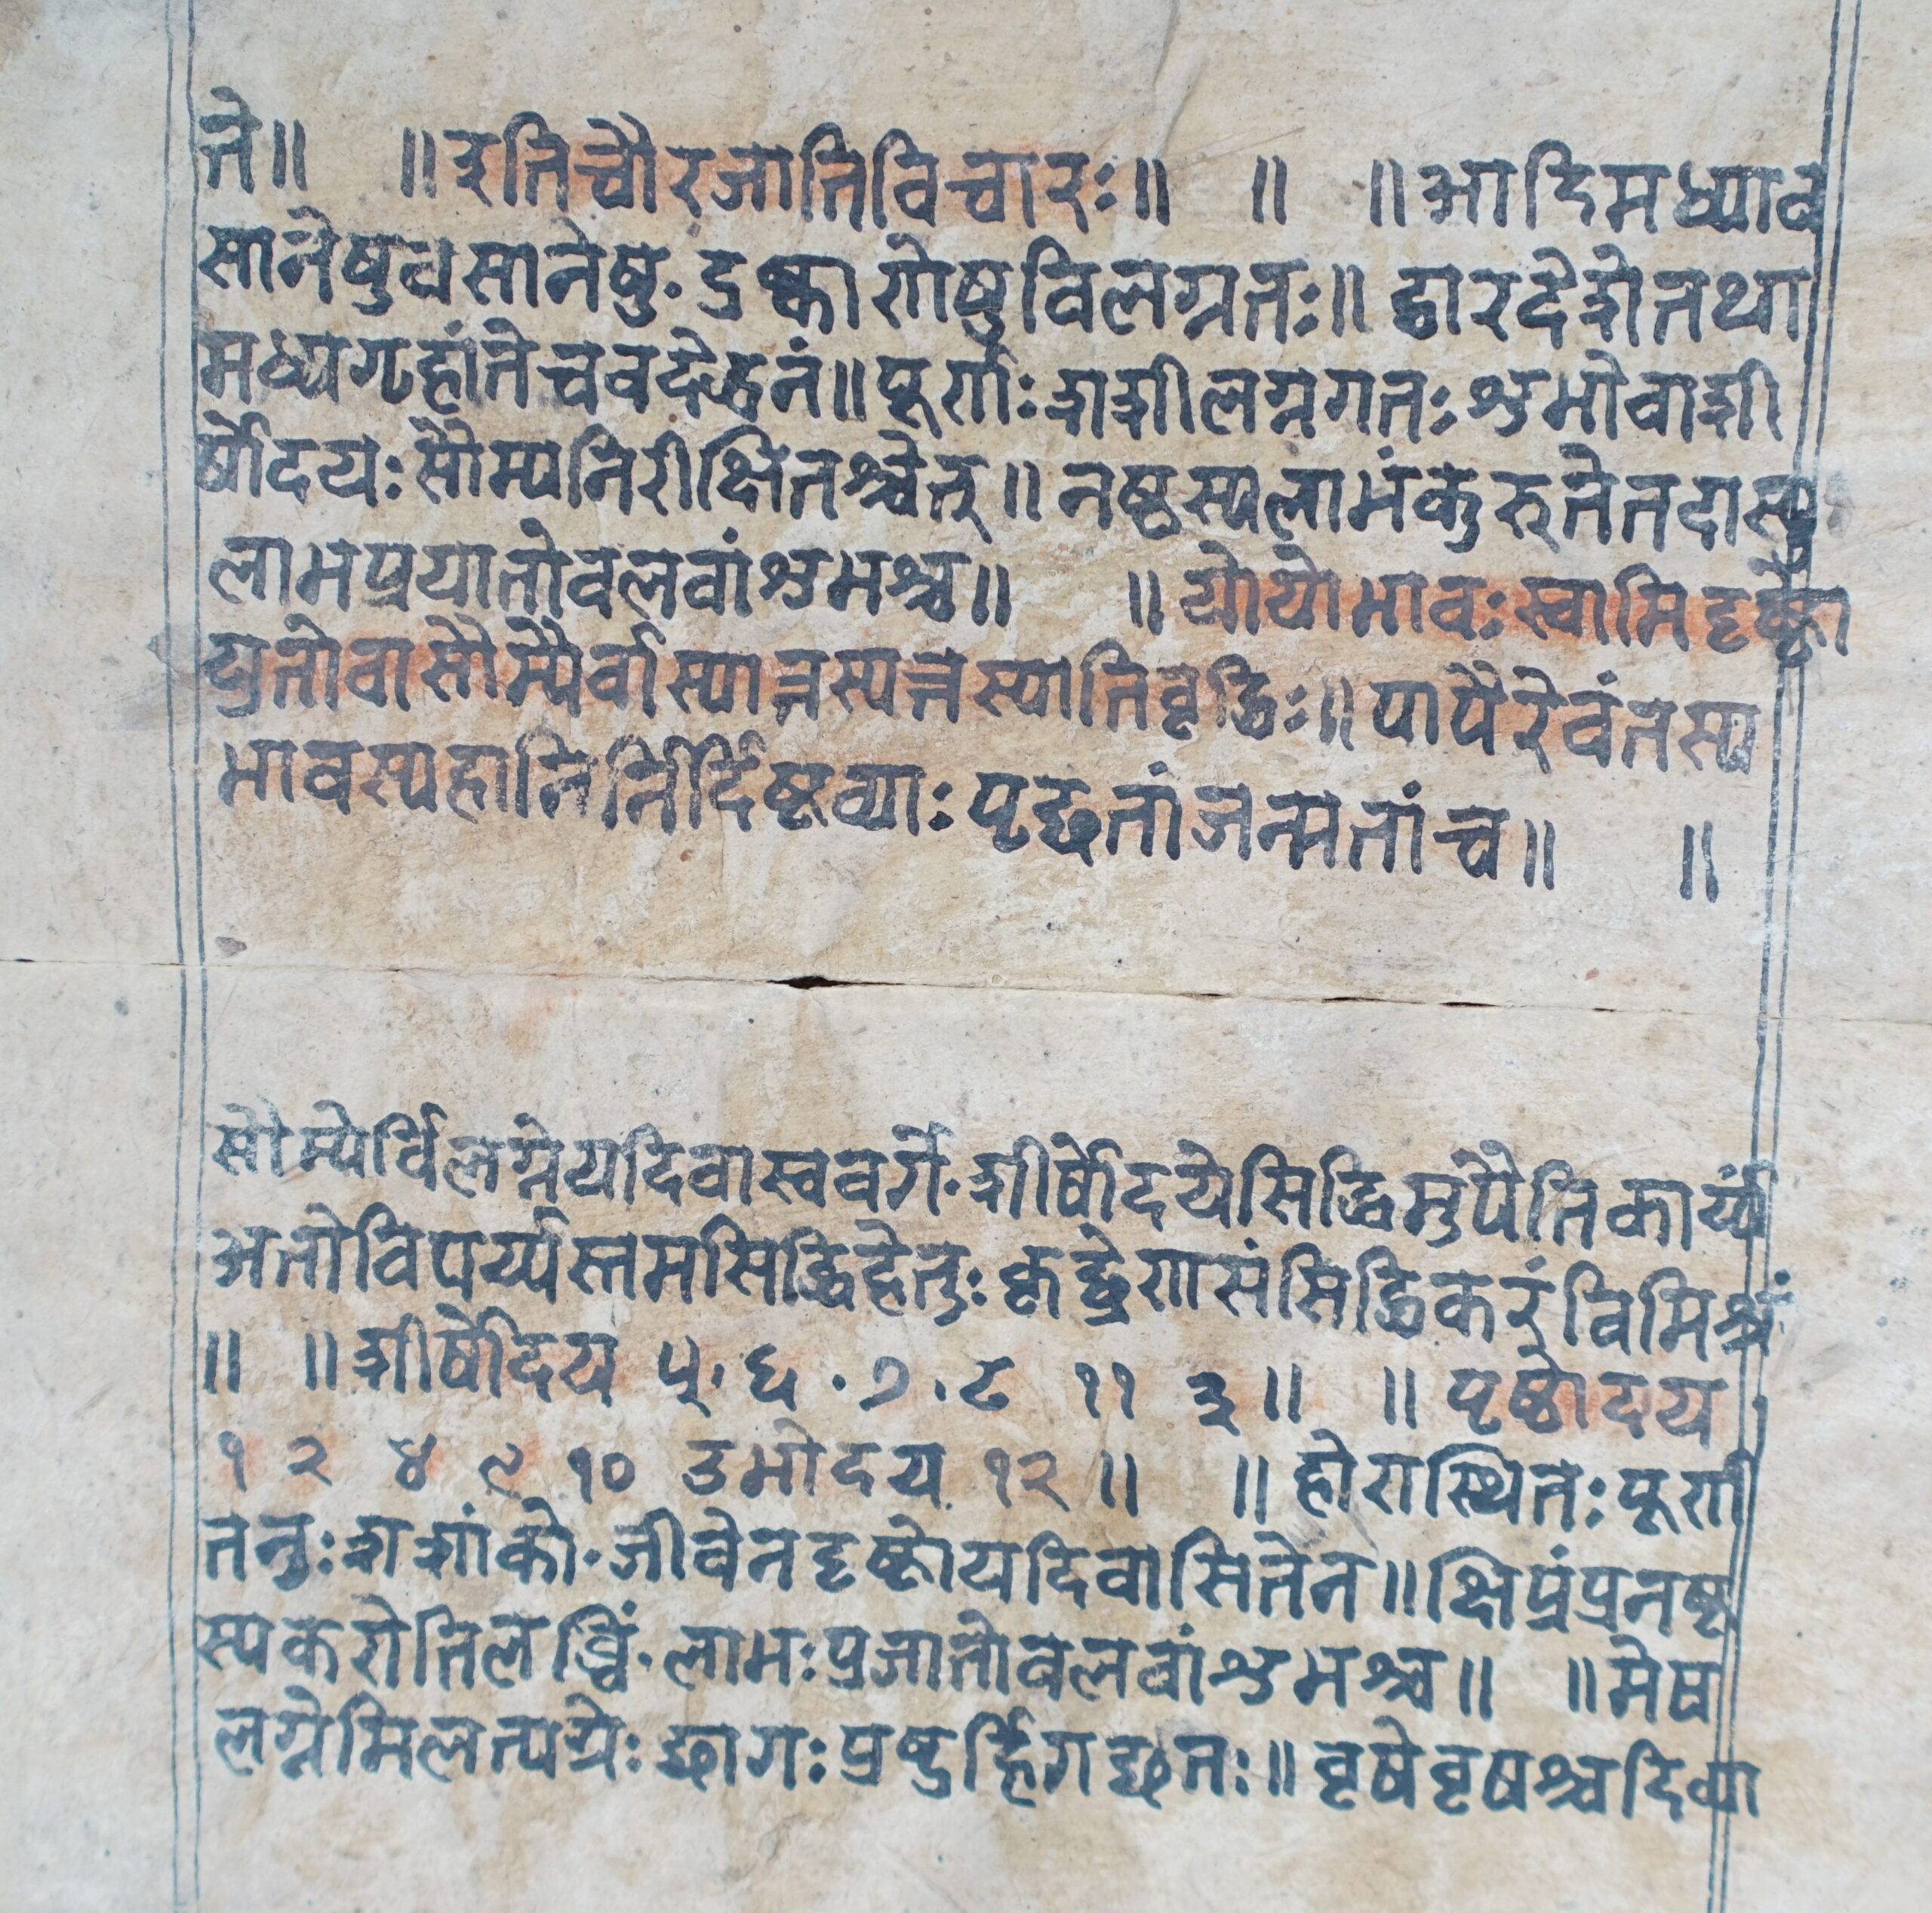 ते॥ ॥इतिचौरजातिविचारः॥ ॥ ॥आदिमध्याव
सानेषुवसानेषु॰द्रेष्काणेषुविलग्नतः॥द्वारदेशेतथा
मध्यगृहांतेचवदेद्धनं॥पूर्णःशशीलग्नगतःशुभोवाशी
र्षोदयःसौम्यनिरीक्षितश्चेत्॥नष्टस्यलाभंकुरुतेतदास्यु
लाभप्रयातोवलवांशुभश्च॥ ॥योयोभावःस्वामिदृष्टो
युतोवासौम्यैर्वास्यात्तस्यतस्यातिवृद्धिः॥पापैरेवंतस्य
भावस्यहानिर्निर्दिष्टव्याःपृछतांजन्मतांच॥ ॥
सौम्येर्विलग्नेयदिवास्ववर्गे॰शीर्षोदयेसिद्धिमुपैतिकार्य्यं
अतोविपर्य्यस्तमसिद्धिहेतुःकृछ्रेणसंसिद्धिकरंविमिश्रं
॥ ॥शीर्षोदय ५॰६॰७॰८ ११ ३॥ ॥पृष्ठोदय
१ २ ४ ९ १० उभोदय १२॥ ॥होरास्थितःपूर्ण
तनुःशशांको॰जीवेनदृष्टोयदिवासितेन॥क्षिप्रंप्रनष्ट
स्यकरोतिलब्धिं॰लाभःप्रजातोवलवांशुभश्च॥ ॥मेष
लग्नेमिलत्यग्रेःछागःप्रष्टुर्हिगछतः॥वृषेवृषश्चदिव्या